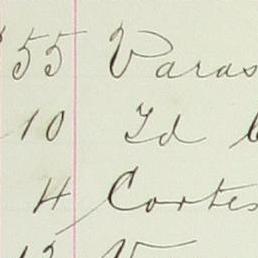 55 Varas
10 Id
4 Cortes